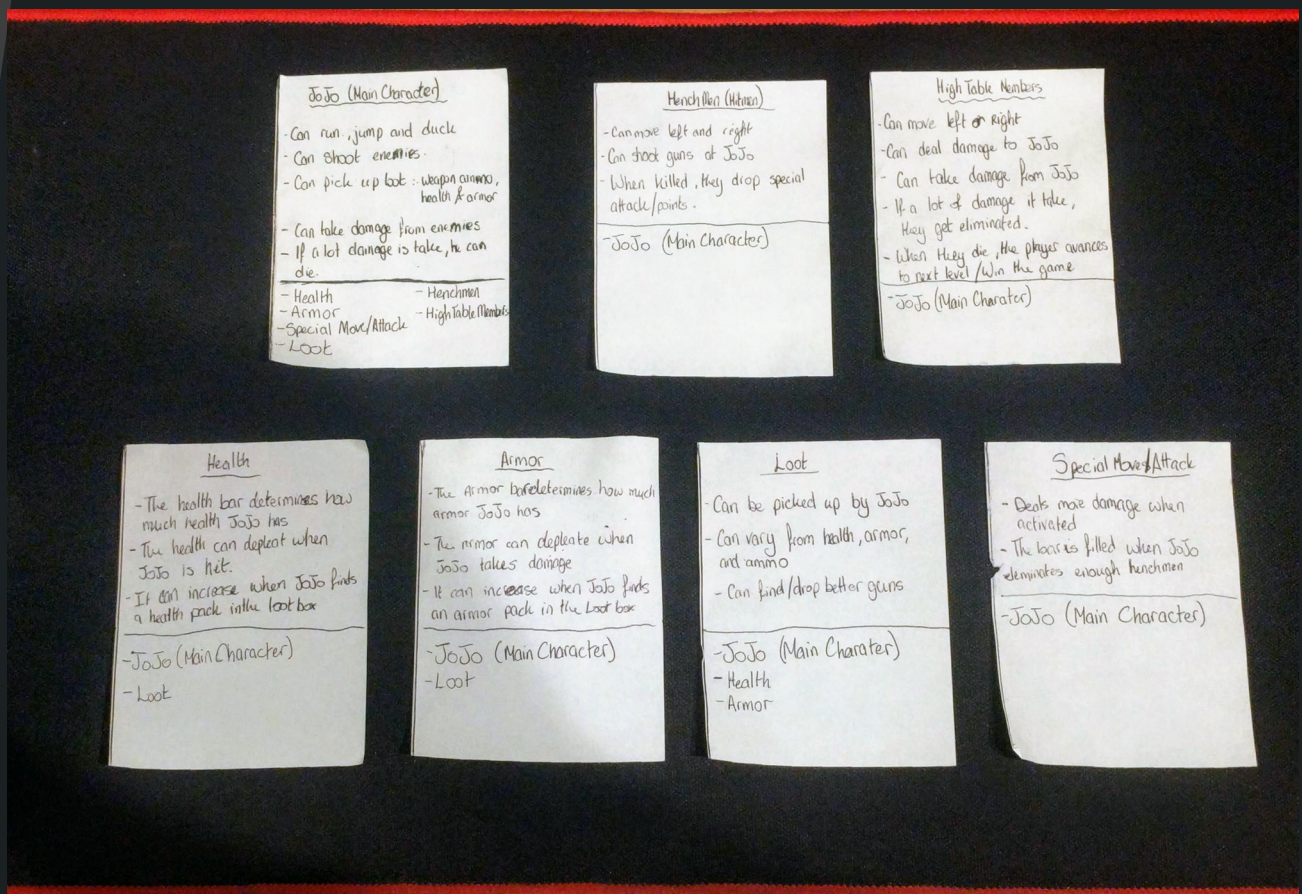 JoJo (Main Character)
- Can run, jump and duck
- Can shoot enemies.
- Can pick up loot: weapon ammo,
health & armor
- Can take damage from enemies
- If a lot damage is take, he can
die.
- Health
- Armor
- Special Move/Attack
- Loot
- Henchmen
- High Table Members
HenchMen (Hitmen)
- Can move left and right
- Can shoot guns at JoJo
- When killed, they drop special
attack/points.
- JoJo (Main Character)
High Table Members
- Can move left or Right
- Can deal damage to JoJo
- Can take damage from JoJo
- If a lot of damage it take,
they get eliminated.
- When they die, the player avances
to next level / Win the game
- JoJo (Main Charater)
Health
- The health bar determines how
much health JoJo has
- The health can depleat when
JoJo is hit.
- It can increase when JoJo finds
a health pack in the loot box
- JoJo (Main Character)
- Loot
Armor
- The Armor bar determines how much
armor JoJo has
- The armor can depleate when
JoJo takes damage
- It can increase when JoJo finds
an armor pack in the Loot box
- JoJo (Main Character)
- Loot
Loot
- Can be picked up by JoJo
- Can vary from health, armor,
and ammo
- Can find/drop better guns
- JoJo (Main Charater)
- Health
- Armor
Special Moves/Attack
- Deals more damage when
activated
- The bar is filled when JoJo
eleminates enough henchmen
- JoJo (Main Character)